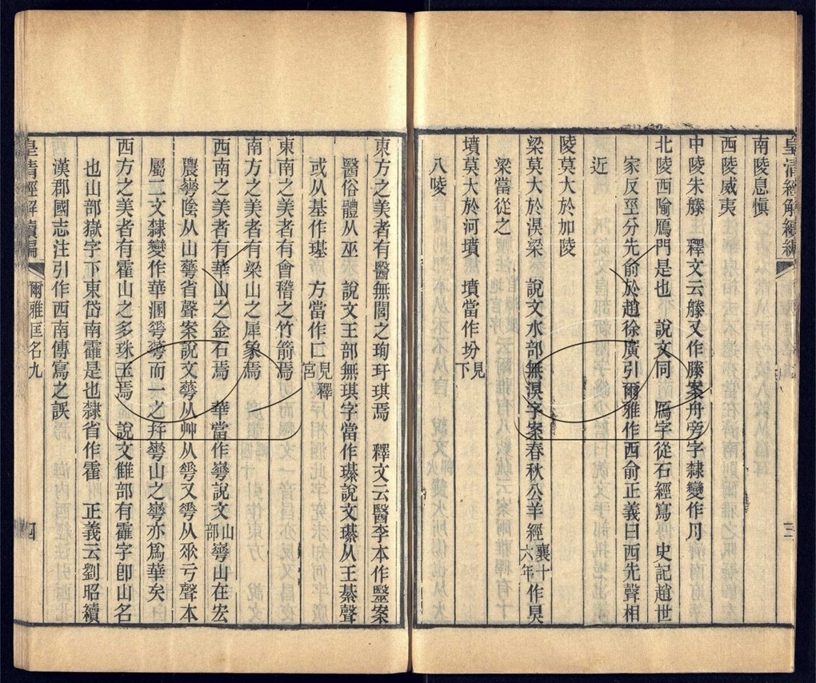 皇清經解續編
南陵息愼
西陵威夷
中陵朱滕　釋文云滕又作勝案舟旁字隸變作月
北陵西隃鴈門是也　說文同　鴈字從石經寫　史記趙世
家反坙分先俞於趙徐廣引爾雅作西俞正義曰西先聲相
近
陵莫大於加陵
梁莫大於湨梁　說文水部無湨字案春秋公羊經襄十六年作昊
梁當從之
墳莫大於河墳　墳當作坋見下
八陵
東方之美者有醫無閭之珣玗琪焉　釋文云醫李本作毉案
醫俗體从巫　說文王部無琪字當作璂說文璂从王綦聲
或从基作璂　方當作匚見釋宮
東南之美者有會稽之竹箭焉
南方之美者有梁山之犀象焉
西南之美者有華山之金石焉　華當作崋說文山部崋山在宏
農崋陰从山華省聲案說文華从艸从𠌶又𠌶从𠂹亏聲本
屬二文隸變作華溷𠌶華而一之并崋山之崋亦爲華矣
西方之美者有霍山之多珠玉焉　說文雔部有靃字卽山名
也山部嶽字下東岱南靃是也隸省作霍　正義云劉昭續
漢郡國志注引作西南傳寫之誤
皇清經解續編
爾雅匡名九
四